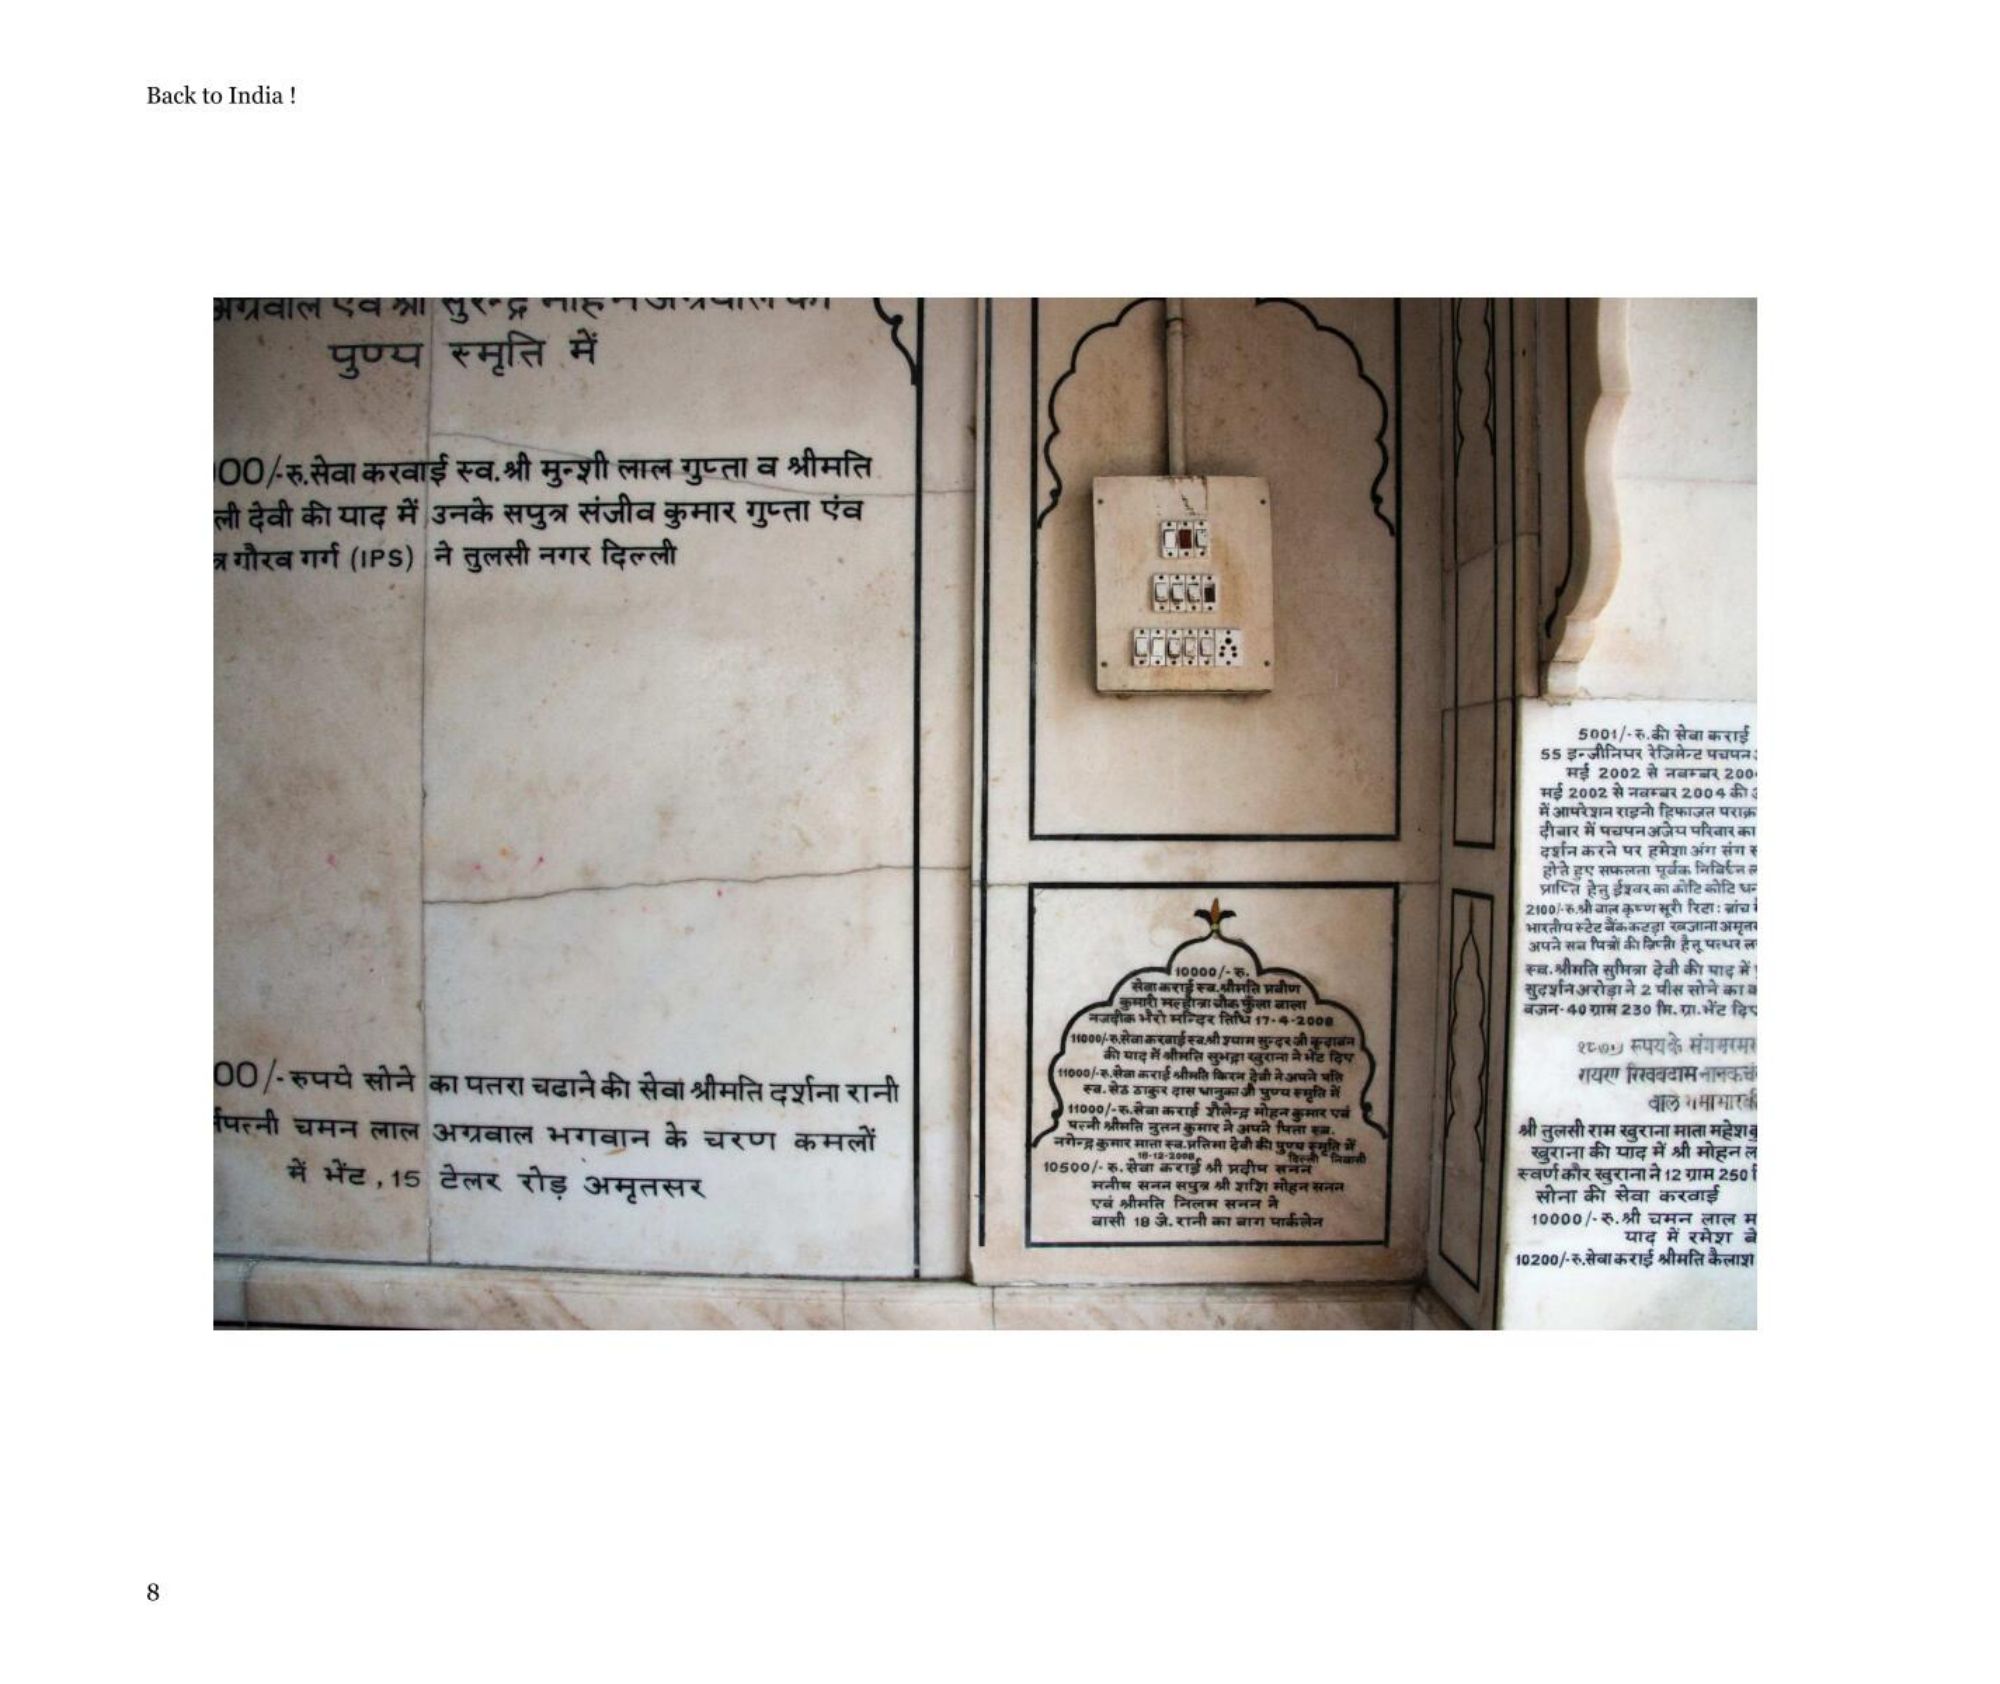 Back to India !
पुण्य स्मृति में
00/-रु.सेवा करवाई स्व.श्री मुन्शी लाल गुप्ता व श्रीमति
ली देवी की याद में उनके सपुत्र संजीव कुमार गुप्ता एंव
त्र गौरव गर्ग (IPS) ने तुलसी नगर दिल्ली
00/-रुपये सोने का पतरा चढाने की सेवा श्रीमति दर्शना रानी
पत्नी चमन लाल अग्रवाल भगवान के चरण कमलों
में भेंट, 15 टेलर रोड़ अमृतसर
10000/-रु.
सेवा कराई स्व.श्रीमति प्रवीण
कुमारी मल्होत्रा चौक फुँला वाला
नजदीक भैरो मन्दिर तिथि 17-4-2008
11000/-रु.सेवा करवाई स्व.श्री श्याम सुन्दर जी वृन्दावन
की याद में श्रीमति सुभद्रा खुराना ने भेंट दिए
11000/-रु.सेवा कराई श्रीमति किरन देवी ने अपने पति
स्व.सेठ ठाकुर दास धानुका जी पुण्य स्मृति में
11000/-रु.सेवा कराई शैलेन्द्र मोहन कुमार एवं
पत्नी श्रीमति नुतन कुमार ने अपने पिता स्व.
नगेन्द्र कुमार माता स्व.प्रतिमा देवी की पुण्य स्मृति में
18-12-2008 दिल्ली निवासी
10500/-रु.सेवा कराई श्री प्रदीप सनन
मनीष सनन सपुत्र श्री शशि मोहन सनन
एवं श्रीमति निलम सनन ने
वासी 18 जे.रानी का बाग पार्कलेन
5001/-रु.की सेवा कराई
55 इन्जीनियर रेजिमेन्ट पचपन
मई 2002 से नवम्बर 200
मई 2002 से नवम्बर 2004 की
में आपरेशन राइनो हिफाजत पराक्र
दीवार में पचपन अजेय परिवार का
दर्शन करने पर हमेशा अंग संग
होते हुए सफलता पूर्वक
प्राप्ति हेतु ईश्वर का कोटि कोटि
2100/-रु.श्री बाल कृष्ण सूरी रिटा: ब्रांच
भारतीय स्टेट बैंक कटड़ा खजाना अमृत
अपने सब पित्रों की हेतू पत्थर
स्व.श्रीमति सुमित्रा देवी की याद में
सुदर्शन अरोड़ा ने 2 पीस सोने का
वजन-40 ग्राम 230 मि.ग्रा.भेंट
रूपय के संगमरमर
श्री तुलसी राम खुराना माता महेश
खुराना की याद में श्री मोहन ल
स्वर्ण कौर खुराना ने 12 ग्राम 250
सोना की सेवा करवाई
10000/-रु.श्री चमन लाल म
याद में रमेश
10200/-रु.सेवा कराई श्रीमति कैलाश
8